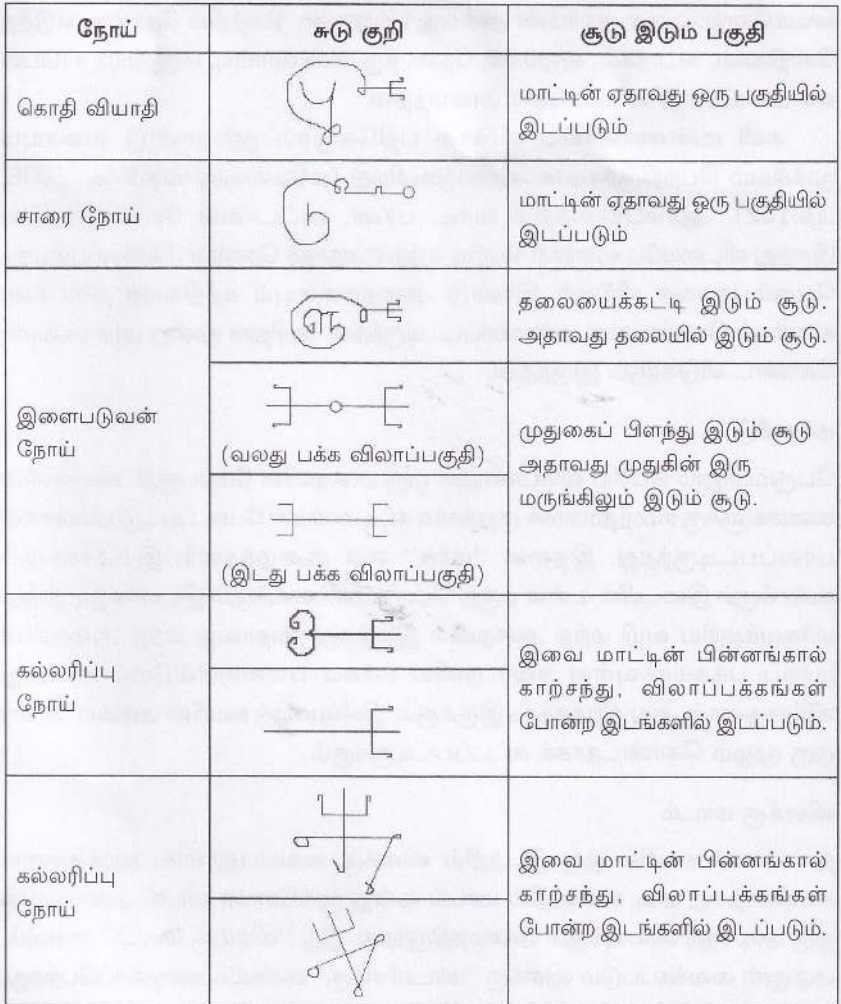 நோய் சுடு குறி சூடு இடும் பகுதி
கொதி வியாதி
மாட்டின் ஏதாவது ஒரு பகுதியில்
இடப்படும்
சாரை நோய்
மாட்டின் ஏதாவது ஒரு பகுதியில்
இடப்படும்
இளைபடுவன்
நோய்
தலையைக்கட்டி இடும் சூடு.
அதாவது தலையில் இடும் சூடு.
(வலது பக்க விலாப்பகுதி)
(இடது பக்க விலாப்பகுதி)
முதுகைப் பிளந்து இடும் சூடு
அதாவது முதுகின் இரு
மருங்கிலும் இடும் சூடு.
கல்லரிப்பு
நோய்
இவை மாட்டின் பின்னங்கால்
காற்சந்து, விலாப்பக்கங்கள்
போன்ற இடங்களில் இடப்படும்.
கல்லரிப்பு
நோய்
இவை மாட்டின் பின்னங்கால்
காற்சந்து, விலாப்பக்கங்கள்
போன்ற இடங்களில் இடப்படும்.